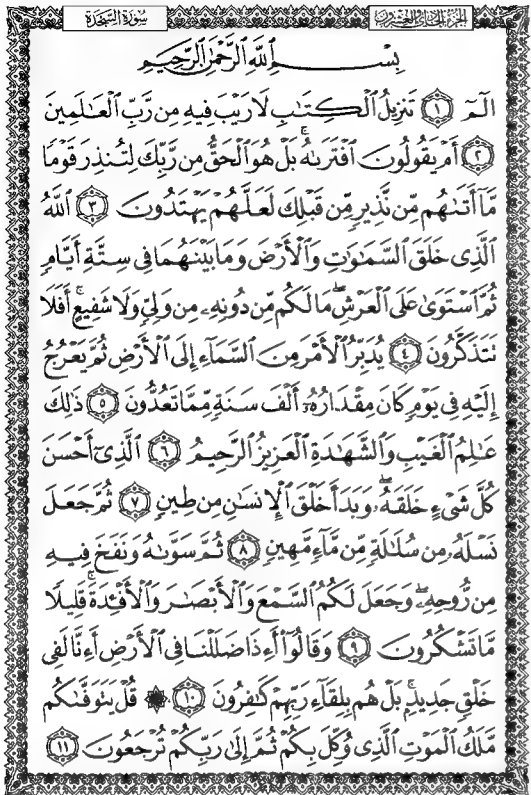 الجزء الحادي والعشرون
سورة السجدة
بِسْمِ ٱللَّهِ ٱلرَّحْمَٰنِ ٱلرَّحِيمِ
الٓمٓ ١ تَنزِيلُ ٱلْكِتَٰبِ لَا رَيْبَ فِيهِ مِن رَّبِّ ٱلْعَٰلَمِينَ
٢ أَمْ يَقُولُونَ ٱفْتَرَىٰهُ ۚ بَلْ هُوَ ٱلْحَقُّ مِن رَّبِّكَ لِتُنذِرَ قَوْمًا
مَّآ أَتَىٰهُم مِّن نَّذِيرٍ مِّن قَبْلِكَ لَعَلَّهُمْ يَهْتَدُونَ ٣ ٱللَّهُ
ٱلَّذِى خَلَقَ ٱلسَّمَٰوَٰتِ وَٱلْأَرْضَ وَمَا بَيْنَهُمَا فِى سِتَّةِ أَيَّامٍ
ثُمَّ ٱسْتَوَىٰ عَلَى ٱلْعَرْشِ ۖ مَا لَكُم مِّن دُونِهِۦ مِن وَلِىٍّ وَلَا شَفِيعٍ ۚ أَفَلَا
تَتَذَكَّرُونَ ٤ يُدَبِّرُ ٱلْأَمْرَ مِنَ ٱلسَّمَآءِ إِلَى ٱلْأَرْضِ ثُمَّ يَعْرُجُ
إِلَيْهِ فِى يَوْمٍ كَانَ مِقْدَارُهُۥٓ أَلْفَ سَنَةٍ مِّمَّا تَعُدُّونَ ٥ ذَٰلِكَ
عَٰلِمُ ٱلْغَيْبِ وَٱلشَّهَٰدَةِ ٱلْعَزِيزُ ٱلرَّحِيمُ ٦ ٱلَّذِىٓ أَحْسَنَ
كُلَّ شَىْءٍ خَلَقَهُۥ ۖ وَبَدَأَ خَلْقَ ٱلْإِنسَٰنِ مِن طِينٍ ٧ ثُمَّ جَعَلَ
نَسْلَهُۥ مِن سُلَٰلَةٍ مِّن مَّآءٍ مَّهِينٍ ٨ ثُمَّ سَوَّىٰهُ وَنَفَخَ فِيهِ
مِن رُّوحِهِۦ ۖ وَجَعَلَ لَكُمُ ٱلسَّمْعَ وَٱلْأَبْصَٰرَ وَٱلْأَفْـِٔدَةَ ۚ قَلِيلًا
مَّا تَشْكُرُونَ ٩ وَقَالُوٓا۟ أَءِذَا ضَلَلْنَا فِى ٱلْأَرْضِ أَءِنَّا لَفِى
خَلْقٍ جَدِيدٍۭ ۚ بَلْ هُم بِلِقَآءِ رَبِّهِمْ كَٰفِرُونَ ١٠ ۞ قُلْ يَتَوَفَّىٰكُم
مَّلَكُ ٱلْمَوْتِ ٱلَّذِى وُكِّلَ بِكُمْ ثُمَّ إِلَىٰ رَبِّكُمْ تُرْجَعُونَ ١١